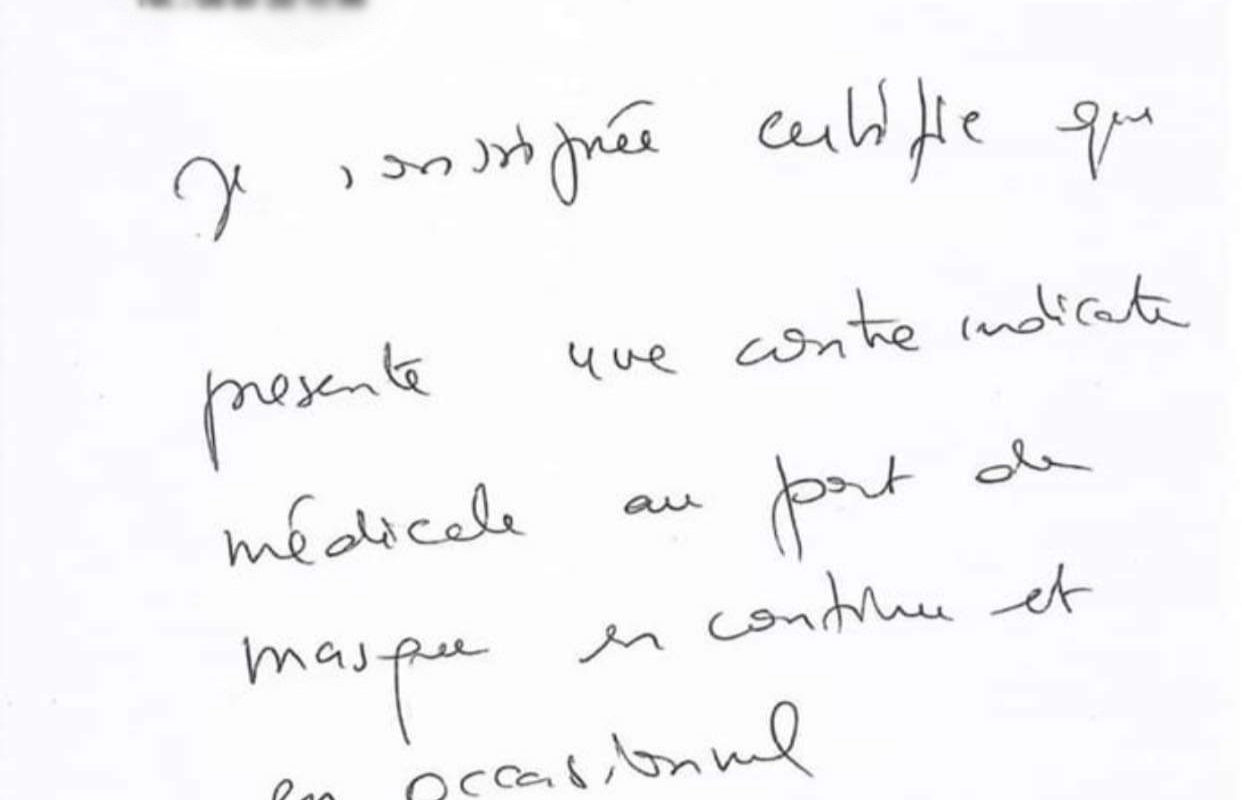 Je soussignée certifie que
presente une contre indication
médicale au port de
masque en continue et
en occasionnel